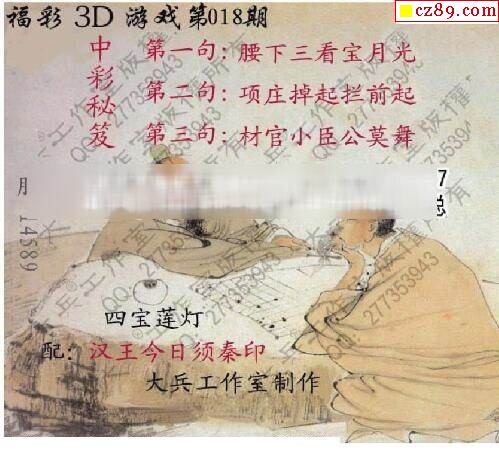 cz89.com
福彩 3D 游戏第018期
中彩秘笈
第一句：腰下三看宝月光
第二句：项庄掉起拦前起
第三句：材官小臣公莫舞
月
14589
7
总
四宝莲灯
配：汉王今日须秦印
大兵工作室制作
大兵工作室版權所有
QQ：277353943